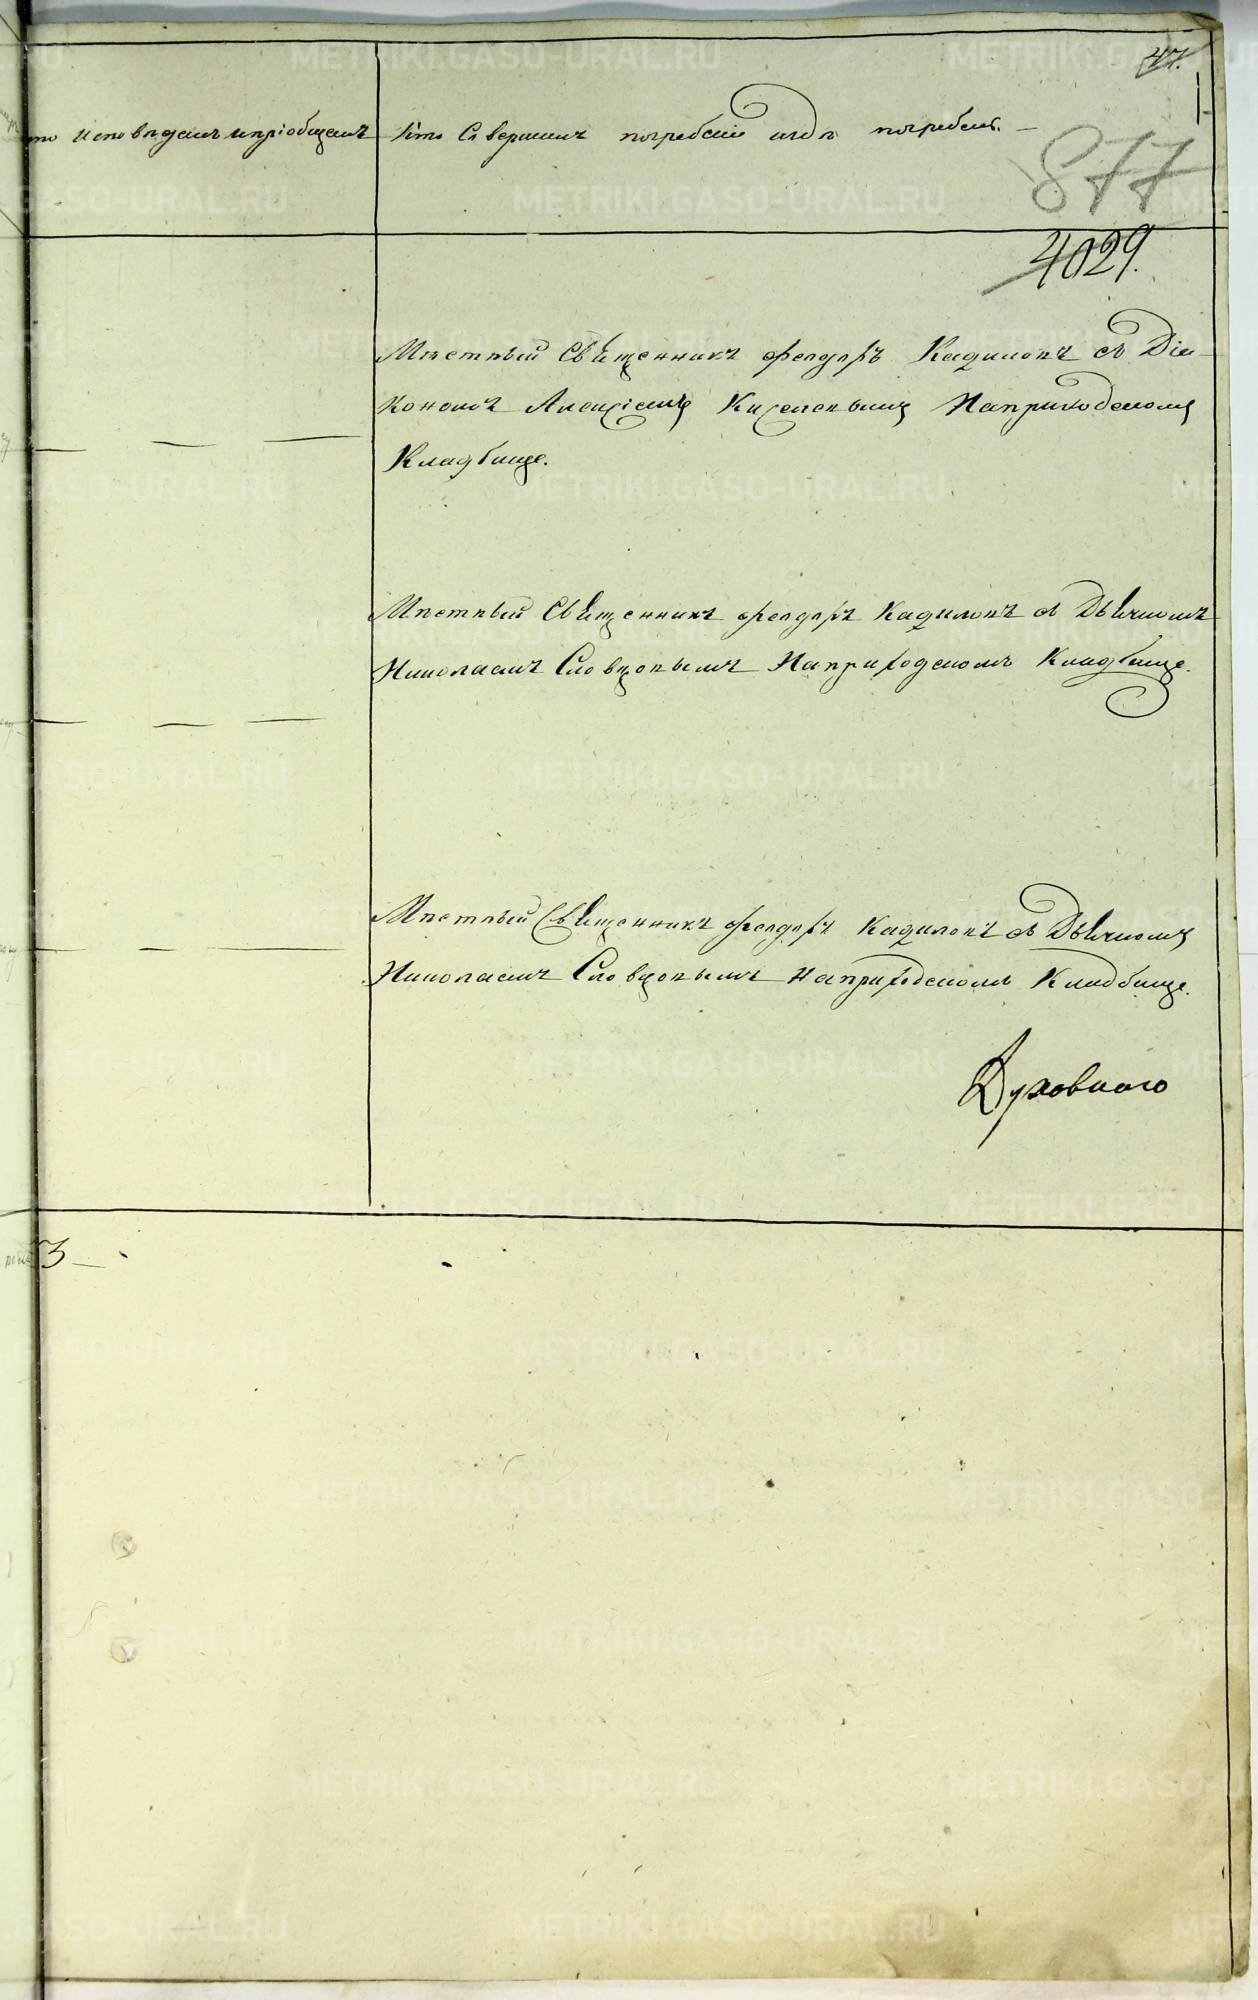 47.
Кто исповѣдалъ и пріобщалъ
Кто Совершилъ погребеніе и гдѣ погребенъ.
877
4029.
Мѣстный Священникъ Феодоръ Кадиловъ съ Діа
кономъ Алексіемъ Киселевымъ На приходскомъ
Кладбище.
Мѣстный Священникъ Феодоръ Кадиловъ съ Дьячкомъ
Николаемъ Словцовымъ На приходскомъ Кладбище.
Мѣстный Священникъ Феодоръ Кадиловъ съ Дьячкомъ
Николаемъ Словцовымъ На приходскомъ Кладбище.
Духовного
3
METRIKI.GASO-URAL.RU